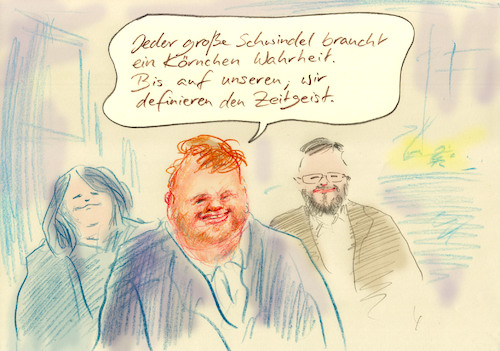 Jeder große Schwindel braucht
ein Körnchen Wahrheit.
Bis auf unseren, wir
definieren den Zeitgeist.